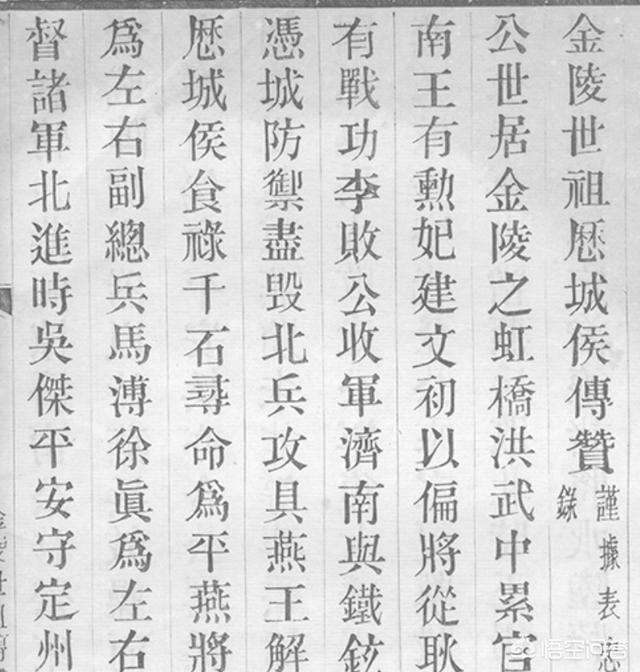 金陵世祖厯城侯傳贊謹據表忠錄
公世居金陵之虹橋洪武中累官
南王有勲妃建文初以偏將從耿
有戰功李敗公收軍濟南與鐵鉉
憑城防禦盡毀北兵攻具燕王解
厯城侯食祿千石尋命爲平燕將
爲左右副總兵馬溥徐眞爲左右
督諸軍北進時吳傑平安守定州
悟空问答